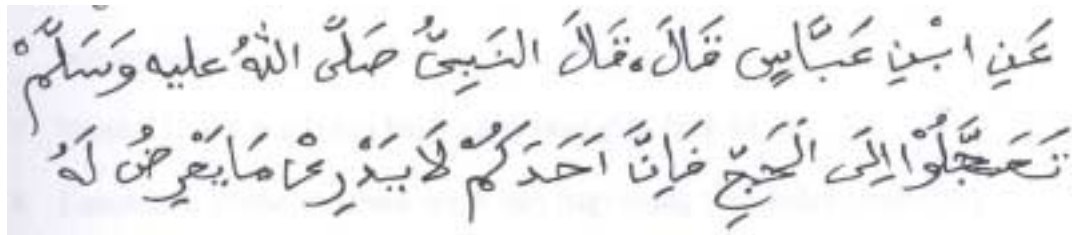 عَنِ ابْنِ عَبَّاسٍ قَالَ، قَالَ النَّبِيُّ صَلَّى اللهُ عليه وَسَلَّمْ
تَعَجَّلُوْا اِلَى الْحَجِّ فَاِنَّ اَحَدَكُمْ لَا يَدْرِىْ مَا يَعْرِضُ لَهُ